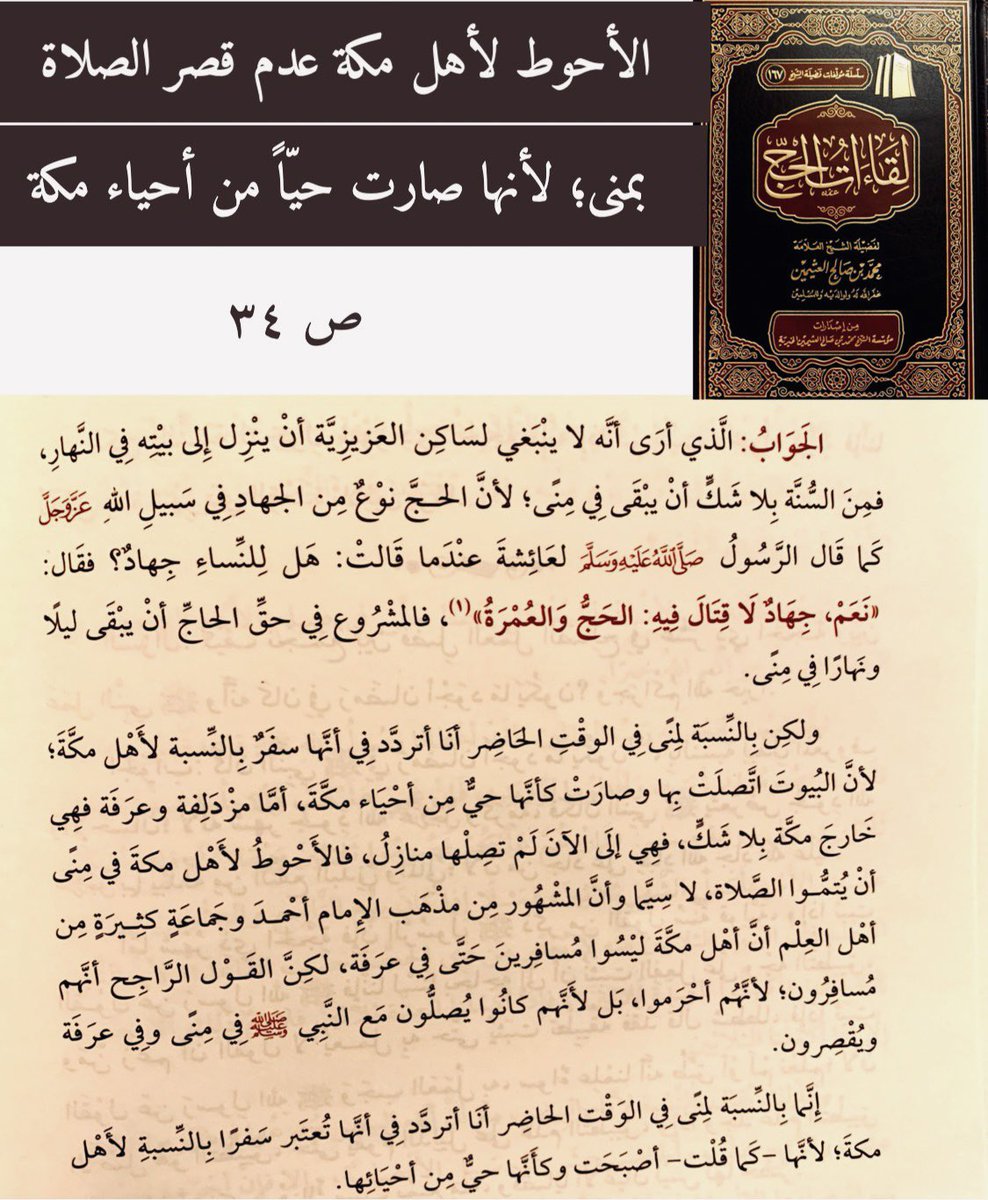 الأحوط لأهل مكة عدم قصر الصلاة
بمنى؛ لأنها صارت حيّاً من أحياء مكة
ص ٣٤
سلسلة مؤلفات فضيلة الشيخ ١٦٧
لقاءات الحج
لفضيلة الشيخ العلامة
محمد بن صالح العثيمين
غفر الله له ولوالديه وللمسلمين
من إصدارات
مؤسسة الشيخ محمد بن صالح العثيمين الخيرية
الجَوَابُ: الَّذي أرَى أنَّه لا ينْبَغي لسَاكِن العَزيزيَّة أنْ ينْزِل إلى بيْتِه فِي النَّهارِ،
فمِنَ السُّنَّة بِلا شَكٍّ أنْ يبْقَى فِي مِنًى؛ لأنَّ الحـجَّ نوْعٌ مِن الجهادِ فِي سَبيلِ اللهِ عَزَّوَجَلَّ
كَما قَال الرَّسُولُ صَلَّى اللَّهُ عَلَيْهِ وَسَلَّمَ لعَائِشةَ عنْدَما قَالتْ: هَل لِلنِّساءِ جِهادٌ؟ فقَال:
«نَعَمْ، جِهَادٌ لَا قِتَالَ فِيهِ: الحَجُّ وَالعُمْرَةُ»(١)، فالمشْرُوع فِي حقِّ الحاجِّ أنْ يبْقَى ليلًا
ونهَارًا فِي مِنًى.
ولكِن بِالنِّسبَة لِمنًى فِي الوقْتِ الحَاضِر أنَا أتردَّد فِي أنَّها سفَرٌ بِالنِّسبة لأهْل مكَّةَ؛
لأنَّ البُيوتَ اتَّصلَتْ بِها وصارَتْ كأنَّها حيٌّ مِن أحْيَاء مكَّةَ، أمَّا مزْدَلِفة وعرَفَة فهِي
خَارجَ مكَّة بِلا شكٍّ، فهِي إلى الآنَ لَمْ تصِلْها منازِلُ، فالأَحْوطُ لأهْل مكةَ في مِنًى
أنْ يُتمُّـوا الصَّلاة، لا سِيَّما وأنَّ المشْهُور مِن مذْهَب الإِمام أحْمـدَ وجَماعَةٍ كثِيـرَةٍ مِن
أهْل العِلْم أنَّ أهْل مكَّةَ ليْسُوا مُسافِرينَ حَتَّى فِي عرَفَة، لكِنَّ القَـوْل الرَّاجِح أنَّهم
مُسافِرُون؛ لأنَّهُم أحْرَموا، بَل لأَنَّهم كانُوا يُصلُّون مَع النَّبِي ﷺ فِي مِنًى وفِي عرَفَة
ويُقْصِرون.
إنَّما بِالنِّسبَة لِمنًى فِي الوَقْت الحاضِر أنَا أتردَّد فِي أنَّها تُعتَبر سَفرًا بِالنِّسبةِ لأَهْل
مكةَ؛ لأنَّها -كَما قُلْت- أصْبَحَت وكأنَّها حيٌّ مِن أحْيَائِها.